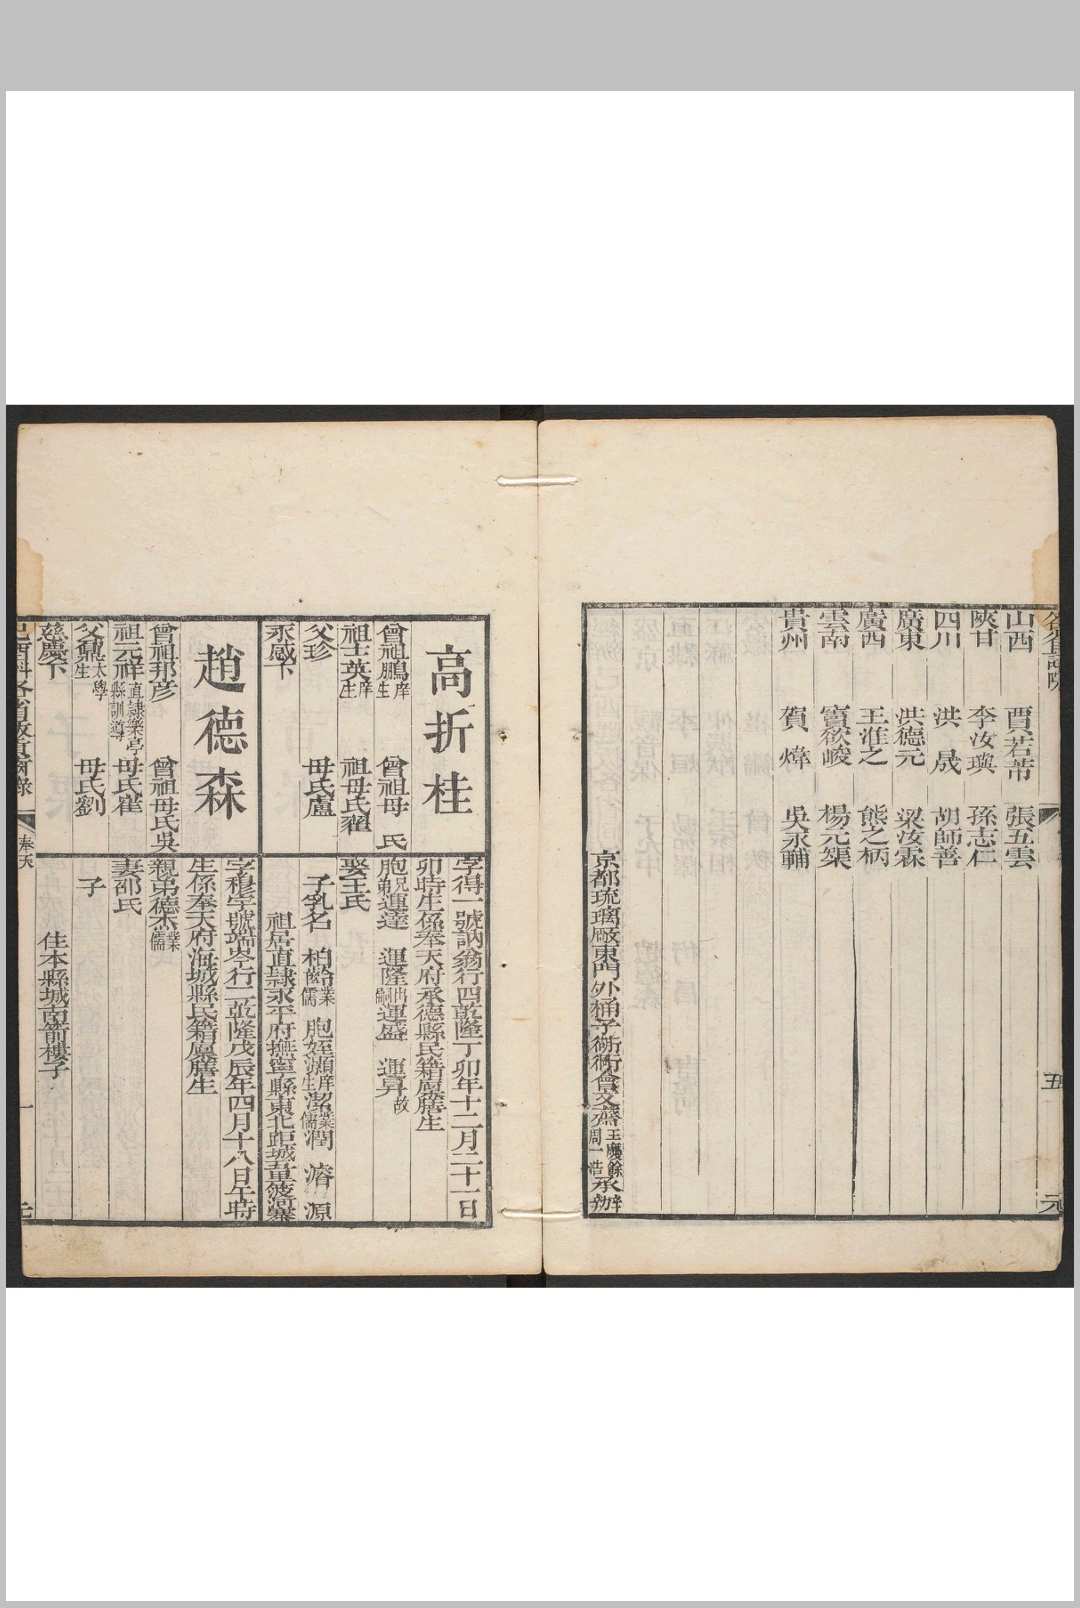 山西 賈若芾 張五雲
陝甘 李汝璵 孫志仁
四川 洪晟 胡師善
廣東 洪德元 梁汝霖
廣西 王淮之 熊之柄
雲南 竇欲峻 楊元榘
貴州 賀煒 吳永輔
京都琉璃廠東門外桶子衚衕會文齋王慶餘周一浩承辦
五 元
高折桂
字得一號訥翁行四乾隆丁卯年十二月二十一日
卯時生係奉天府承德縣民籍廩膳生
曾祖鵬庠生 曾祖母 氏
胞兄弟運達 運隆出嗣運盛 運昇故
祖士英庠生 祖母氏翟
娶王氏
父珍 母氏盧
子乳名 柏齡業儒 胞姪灝庠生洺業儒潤 濬 源
永感下
祖居直隸永平府撫寧縣東北距城
趙德森
字穆亭號端岑行二乾隆戊辰年四月十八日午時
生係奉天府海城縣民籍廩膳生
曾祖邦彦 曾祖母氏吳
親弟德杰業儒
祖元祥直隸樂亭縣訓導 母氏崔
妻邵氏
父鼐太學生 母氏劉
子
慈慶下
住本縣城南箭樓子
己酉科各省拔貢同年錄 奉天 一 元